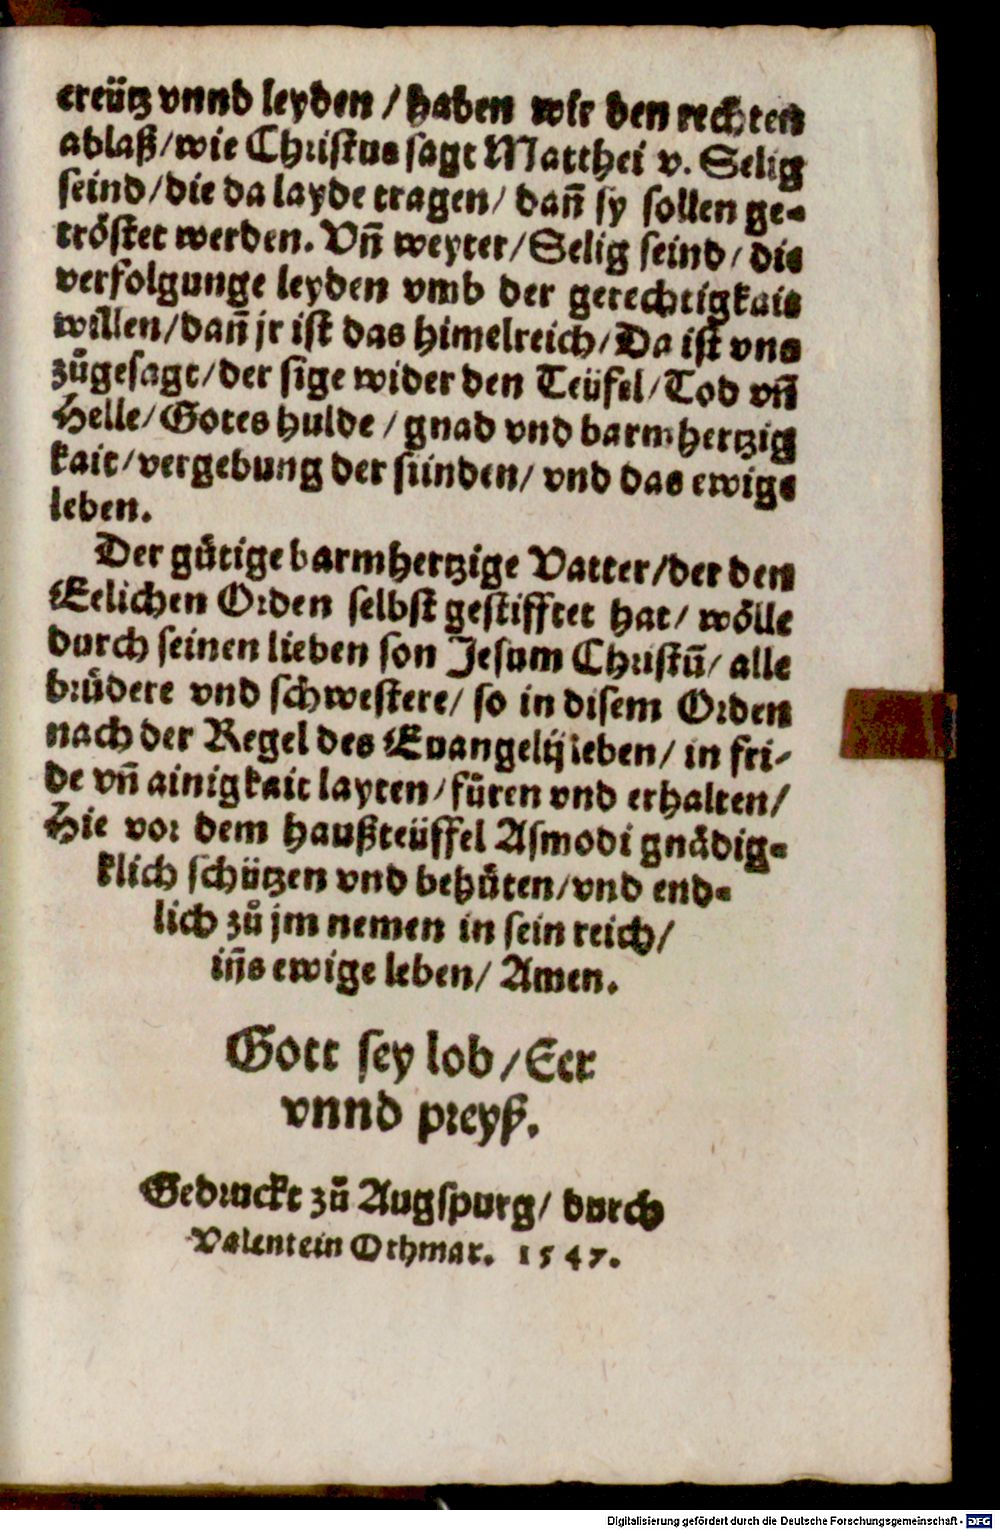 creütz vnnd leyden / haben wir den rechten
ablaß/wie Christus sagt Matthei v. Selig
seind/die da layde tragen/ dañ sy sollen ge-
tröstet werden. Vñ weyter/Selig seind/ die
verfolgunge leyden vmb der gerechtigkait
willen/dañ jr ist das himelreich/Da ist vns
zůgesagt/der sige wider den Teüfel/Tod vñ
Helle/Gotes hulde / gnad vnd barmhertzig
kait/vergebung der sünden/ vnd das ewige
leben.
Der gůtige barmhertzige Vatter/der den
Eelichen Orden selbst gestifftet hat/ wölle
durch seinen lieben son Jesum Christũ/ alle
brůdere vnd schwestere/ so in disem Orden
nach der Regel des Euangelij leben/ in fri-
de vñ ainigkait layten/fůren vnd erhalten/
Hie vor dem haußteüffel Asmodi gnädig-
klich schützen vnd behůten/vnd end-
lich zů jm nemen in sein reich/
iñs ewige leben/ Amen.
Gott sey lob/Eer
vnnd preyß.
Gedruckt zů Augspurg/ durch
Valentein Othmar. 1547.
Digitalisierung gefördert durch die Deutsche Forschungsgemeinschaft - DFG